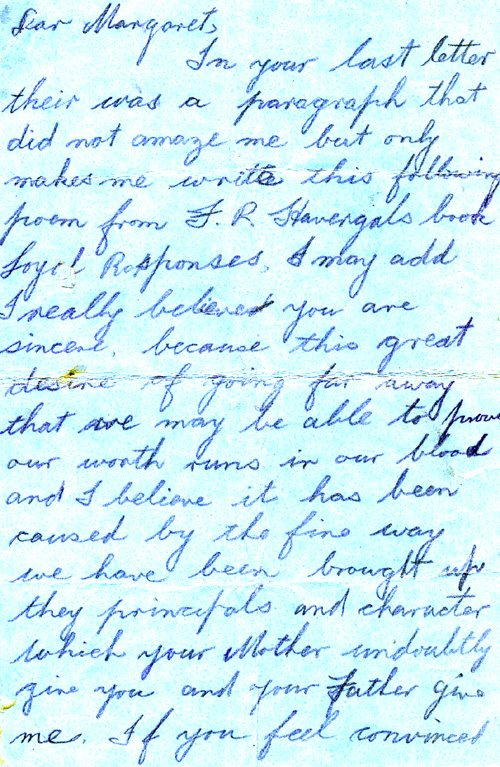 Dear Margaret,
In your last letter
their was a paragraph that
did not amaze me but only
makes me write this following
poem from F. R. Havergals book
Loyal Responses. I may add
I really believed you are
sincere, because this great
desire of going far away
that we may be able to prove
our worth runs in our blood
and I believe it has been
caused by the fine way
we have been brought up,
they principals and character
which your Mother undoubtly
give you and your Father give
me. If you feel convinced